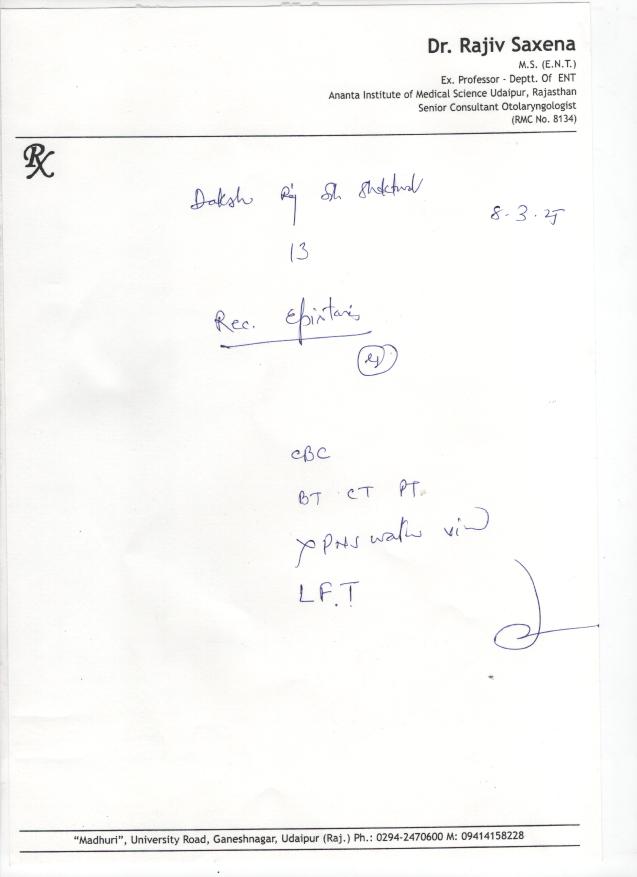 Dr. Rajiv Saxena
M.S. (E.N.T.)
Ex. Professor - Deptt. Of ENT
Ananta Institute of Medical Science Udaipur, Rajasthan
Senior Consultant Otolaryngologist
(RMC No. 8134)
Rx
Daksh Raj
8.3.25
13
Rec. Epistaxis
CBC
BT CT PT
X PNS water view
L.F.T
"Madhuri", University Road, Ganeshnagar, Udaipur (Raj.) Ph.: 0294-2470600 M: 09414158228